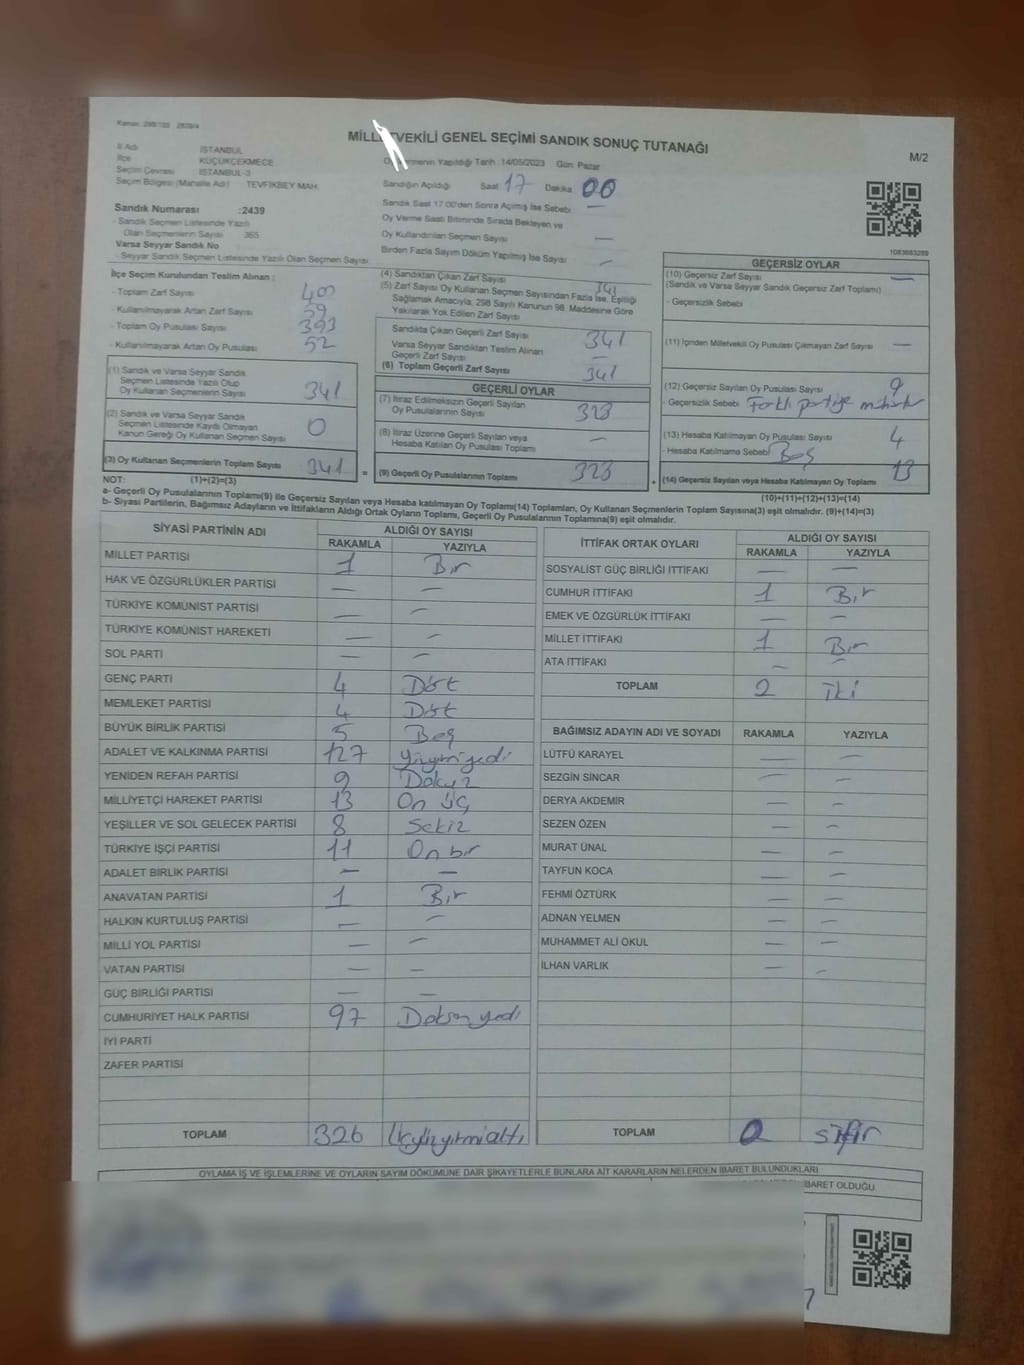 Kanun: 298/105 2839/4
MİLLETVEKİLİ GENEL SEÇİMİ SANDIK SONUÇ TUTANAĞI
M/2
İl Adı İSTANBUL
İlçe KÜÇÜKÇEKMECE
Seçim Çevresi İSTANBUL-3
Seçim Bölgesi (Mahalle Adı) TEVFİKBEY MAH.
Sandık Numarası :2439
- Sandık Seçmen Listesinde Yazılı
Olan Seçmenlerin Sayısı 365
Varsa Seyyar Sandık No
- Seyyar Sandık Seçmen Listesinde Yazılı Olan Seçmen Sayısı
Yapıldığı Tarih :14/05/2023 Gün: Pazar
Sandığın Açıldığı Saat 17 Dakika 00
Sandık Saat 17:00'den Sonra Açılmış İse Sebebi —
Oy Verme Saati Bitiminde Sırada Bekleyen ve
Oy Kullandırılan Seçmen Sayısı —
Birden Fazla Sayım Döküm Yapılmış İse Sayısı —
1083683289
İlçe Seçim Kurulundan Teslim Alınan :
- Toplam Zarf Sayısı 400
- Kullanılmayarak Artan Zarf Sayısı 59
- Toplam Oy Pusulası Sayısı 393
- Kullanılmayarak Artan Oy Pusulası 52
(1) Sandık ve Varsa Seyyar Sandık
Seçmen Listesinde Yazılı Olup
Oy Kullanan Seçmenlerin Sayısı 341
(2) Sandık ve Varsa Seyyar Sandık
Seçmen Listesinde Kayıtlı Olmayan
Kanun Gereği Oy Kullanan Seçmen Sayısı 0
(3) Oy Kullanan Seçmenlerin Toplam Sayısı 341 =
(4) Sandıktan Çıkan Zarf Sayısı 341
(5) Zarf Sayısı Oy Kullanan Seçmen Sayısından Fazla İse, Eşitliği
Sağlamak Amacıyla, 298 Sayılı Kanunun 98. Maddesine Göre
Yakılarak Yok Edilen Zarf Sayısı
Sandıkta Çıkan Geçerli Zarf Sayısı 341
Varsa Seyyar Sandıktan Teslim Alınan
Geçerli Zarf Sayısı —
(6) Toplam Geçerli Zarf Sayısı 341
GEÇERLİ OYLAR
(7) İtiraz Edilmeksizin Geçerli Sayılan
Oy Pusulalarının Sayısı 323
(8) İtiraz Üzerine Geçerli Sayılan veya
Hesaba Katılan Oy Pusulası Toplamı —
(9) Geçerli Oy Pusulalarının Toplamı 323 +
GEÇERSİZ OYLAR
(10) Geçersiz Zarf Sayısı —
(Sandık ve Varsa Seyyar Sandık Geçersiz Zarf Toplamı)
- Geçersizlik Sebebi
(11) İçinden Milletvekili Oy Pusulası Çıkmayan Zarf Sayısı —
(12) Geçersiz Sayılan Oy Pusulası Sayısı 9
- Geçersizlik Sebebi Farklı partiye
(13) Hesaba Katılmayan Oy Pusulası Sayısı 4
- Hesaba Katılmama Sebebi Boş
(14) Geçersiz Sayılan veya Hesaba Katılmayan Oy Toplamı 13
NOT: (1)+(2)=(3)
(10)+(11)+(12)+(13)=(14)
a- Geçerli Oy Pusulalarının Toplamı(9) ile Geçersiz Sayılan veya Hesaba katılmayan Oy Toplamı(14) Toplamları, Oy Kullanan Seçmenlerin Toplam Sayısına(3) eşit olmalıdır. (9)+(14)=(3)
b- Siyasi Partilerin, Bağımsız Adayların ve İttifakların Aldığı Ortak Oyların Toplamı, Geçerli Oy Pusulalarının Toplamına(9) eşit olmalıdır.
SİYASİ PARTİNİN ADI ALDIĞI OY SAYISI
RAKAMLA YAZIYLA
MİLLET PARTİSİ 1 Bir
HAK VE ÖZGÜRLÜKLER PARTİSİ — —
TÜRKİYE KOMÜNİST PARTİSİ — —
TÜRKİYE KOMÜNİST HAREKETİ — —
SOL PARTİ — —
GENÇ PARTİ 4 Dört
MEMLEKET PARTİSİ 4 Dört
BÜYÜK BİRLİK PARTİSİ 5 Beş
ADALET VE KALKINMA PARTİSİ 127 yüzyirmiyedi
YENİDEN REFAH PARTİSİ 9 Dokuz
MİLLİYETÇİ HAREKET PARTİSİ 13 On üç
YEŞİLLER VE SOL GELECEK PARTİSİ 8 Sekiz
TÜRKİYE İŞÇİ PARTİSİ 11 On bir
ADALET BİRLİK PARTİSİ — —
ANAVATAN PARTİSİ 1 Bir
HALKIN KURTULUŞ PARTİSİ — —
MİLLİ YOL PARTİSİ — —
VATAN PARTİSİ — —
GÜÇ BİRLİĞİ PARTİSİ — —
CUMHURİYET HALK PARTİSİ 97 Doksan yedi
İYİ PARTİ
ZAFER PARTİSİ
TOPLAM 326 Üçyüzyirmialtı
İTTİFAK ORTAK OYLARI ALDIĞI OY SAYISI
RAKAMLA YAZIYLA
SOSYALİST GÜÇ BİRLİĞİ İTTİFAKI — —
CUMHUR İTTİFAKI 1 Bir
EMEK VE ÖZGÜRLÜK İTTİFAKI — —
MİLLET İTTİFAKI 1 Bir
ATA İTTİFAKI — —
TOPLAM 2 iki
BAĞIMSIZ ADAYIN ADI VE SOYADI RAKAMLA YAZIYLA
LÜTFÜ KARAYEL — —
SEZGİN SİNCAR — —
DERYA AKDEMİR — —
SEZEN ÖZEN — —
MURAT ÜNAL — —
TAYFUN KOCA — —
FEHMİ ÖZTÜRK — —
ADNAN YELMEN — —
MUHAMMET ALİ OKUL — —
İLHAN VARLIK — —
TOPLAM 0 sıfır
OYLAMA İŞ VE İŞLEMLERİNE VE OYLARIN SAYIM DÖKÜMÜNE DAİR ŞİKAYETLERLE BUNLARA AİT KARARLARIN NELERDEN İBARET BULUNDUKLARI
BARET OLDUĞU